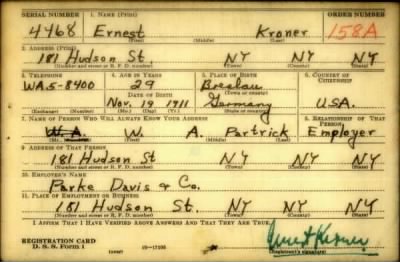 SERIAL NUMBER 1. NAME (Print) ORDER NUMBER
4468 Ernest Kroner 158A
(First) (Middle) (Last)
2. ADDRESS (Print)
181 Hudson St. NY NY NY
(Number and street or R. F. D. number) (Town) (County) (State)
3. TELEPHONE 4. AGE IN YEARS 5. PLACE OF BIRTH 6. COUNTRY OF CITIZENSHIP
WA.5-8400 29 Breslau
DATE OF BIRTH (Town or county)
Nov. 19 1911 Germany U.S.A.
(Exchange) (Number) (Mo.) (Day) (Yr.) (State or country)
7. NAME OF PERSON WHO WILL ALWAYS KNOW YOUR ADDRESS 8. RELATIONSHIP OF THAT PERSON
W. A. W. A. Partrick Employer
(Mr., Mrs., Miss) (First) (Middle) (Last)
9 ADDRESS OF THAT PERSON
181 Hudson St NY NY NY
(Number and street or R. F. D. number) (Town) (County) (State)
10. EMPLOYER'S NAME
Parke Davis & Co.
11. PLACE OF EMPLOYMENT OR BUSINESS
181 Hudson St. NY NY NY
(Number and street or R. F. D. number) (Town) (County) (State)
I AFFIRM THAT I HAVE VERIFIED ABOVE ANSWERS AND THAT THEY ARE TRUE.
Ernest Kroner
REGISTRATION CARD
D. S. S. Form 1 (over) 16-17105 (Registrant's signature)